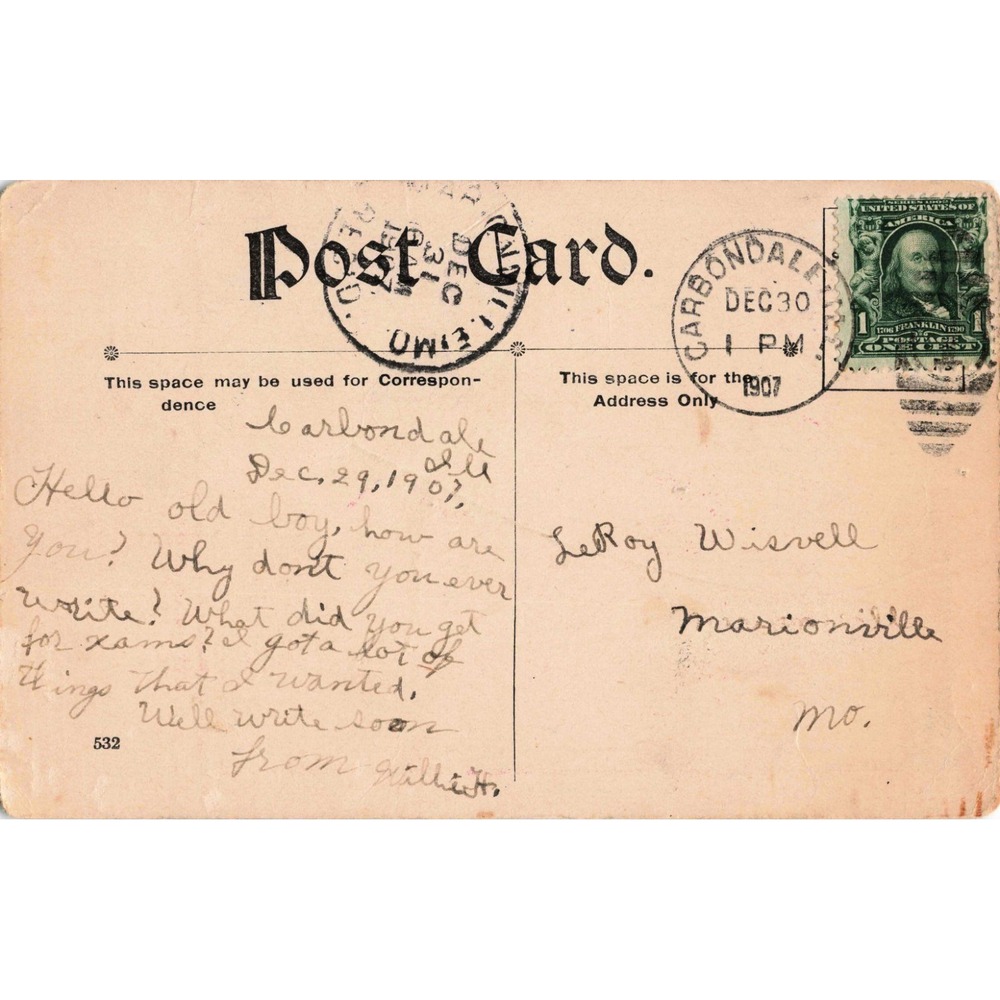 Post Card.
MARIONVILLE, MO.
DEC
31
1907
REC'D.
CARBONDALE
DEC 30
1 PM
1907
SERIES 1902
UNITED STATES OF
AMERICA
1
1706 FRANKLIN 1790
1
POSTAGE
ONE CENT
This space may be used for Correspon-
dence
This space is for the
Address Only
Carbondale
Ill
Dec. 29, 1907.
Hello old boy, how are
you? Why dont you ever
write? What did you get
for xams? I got a lot of
things that I wanted.
Well write soon
from Willie H.
532
LeRoy Wisvell
Marionville
Mo.